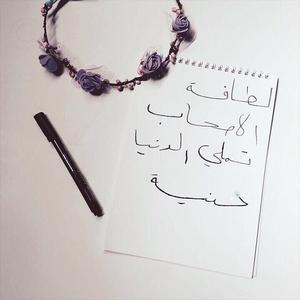 لطافة
الاصحاب
تملي الدنيا
حنية